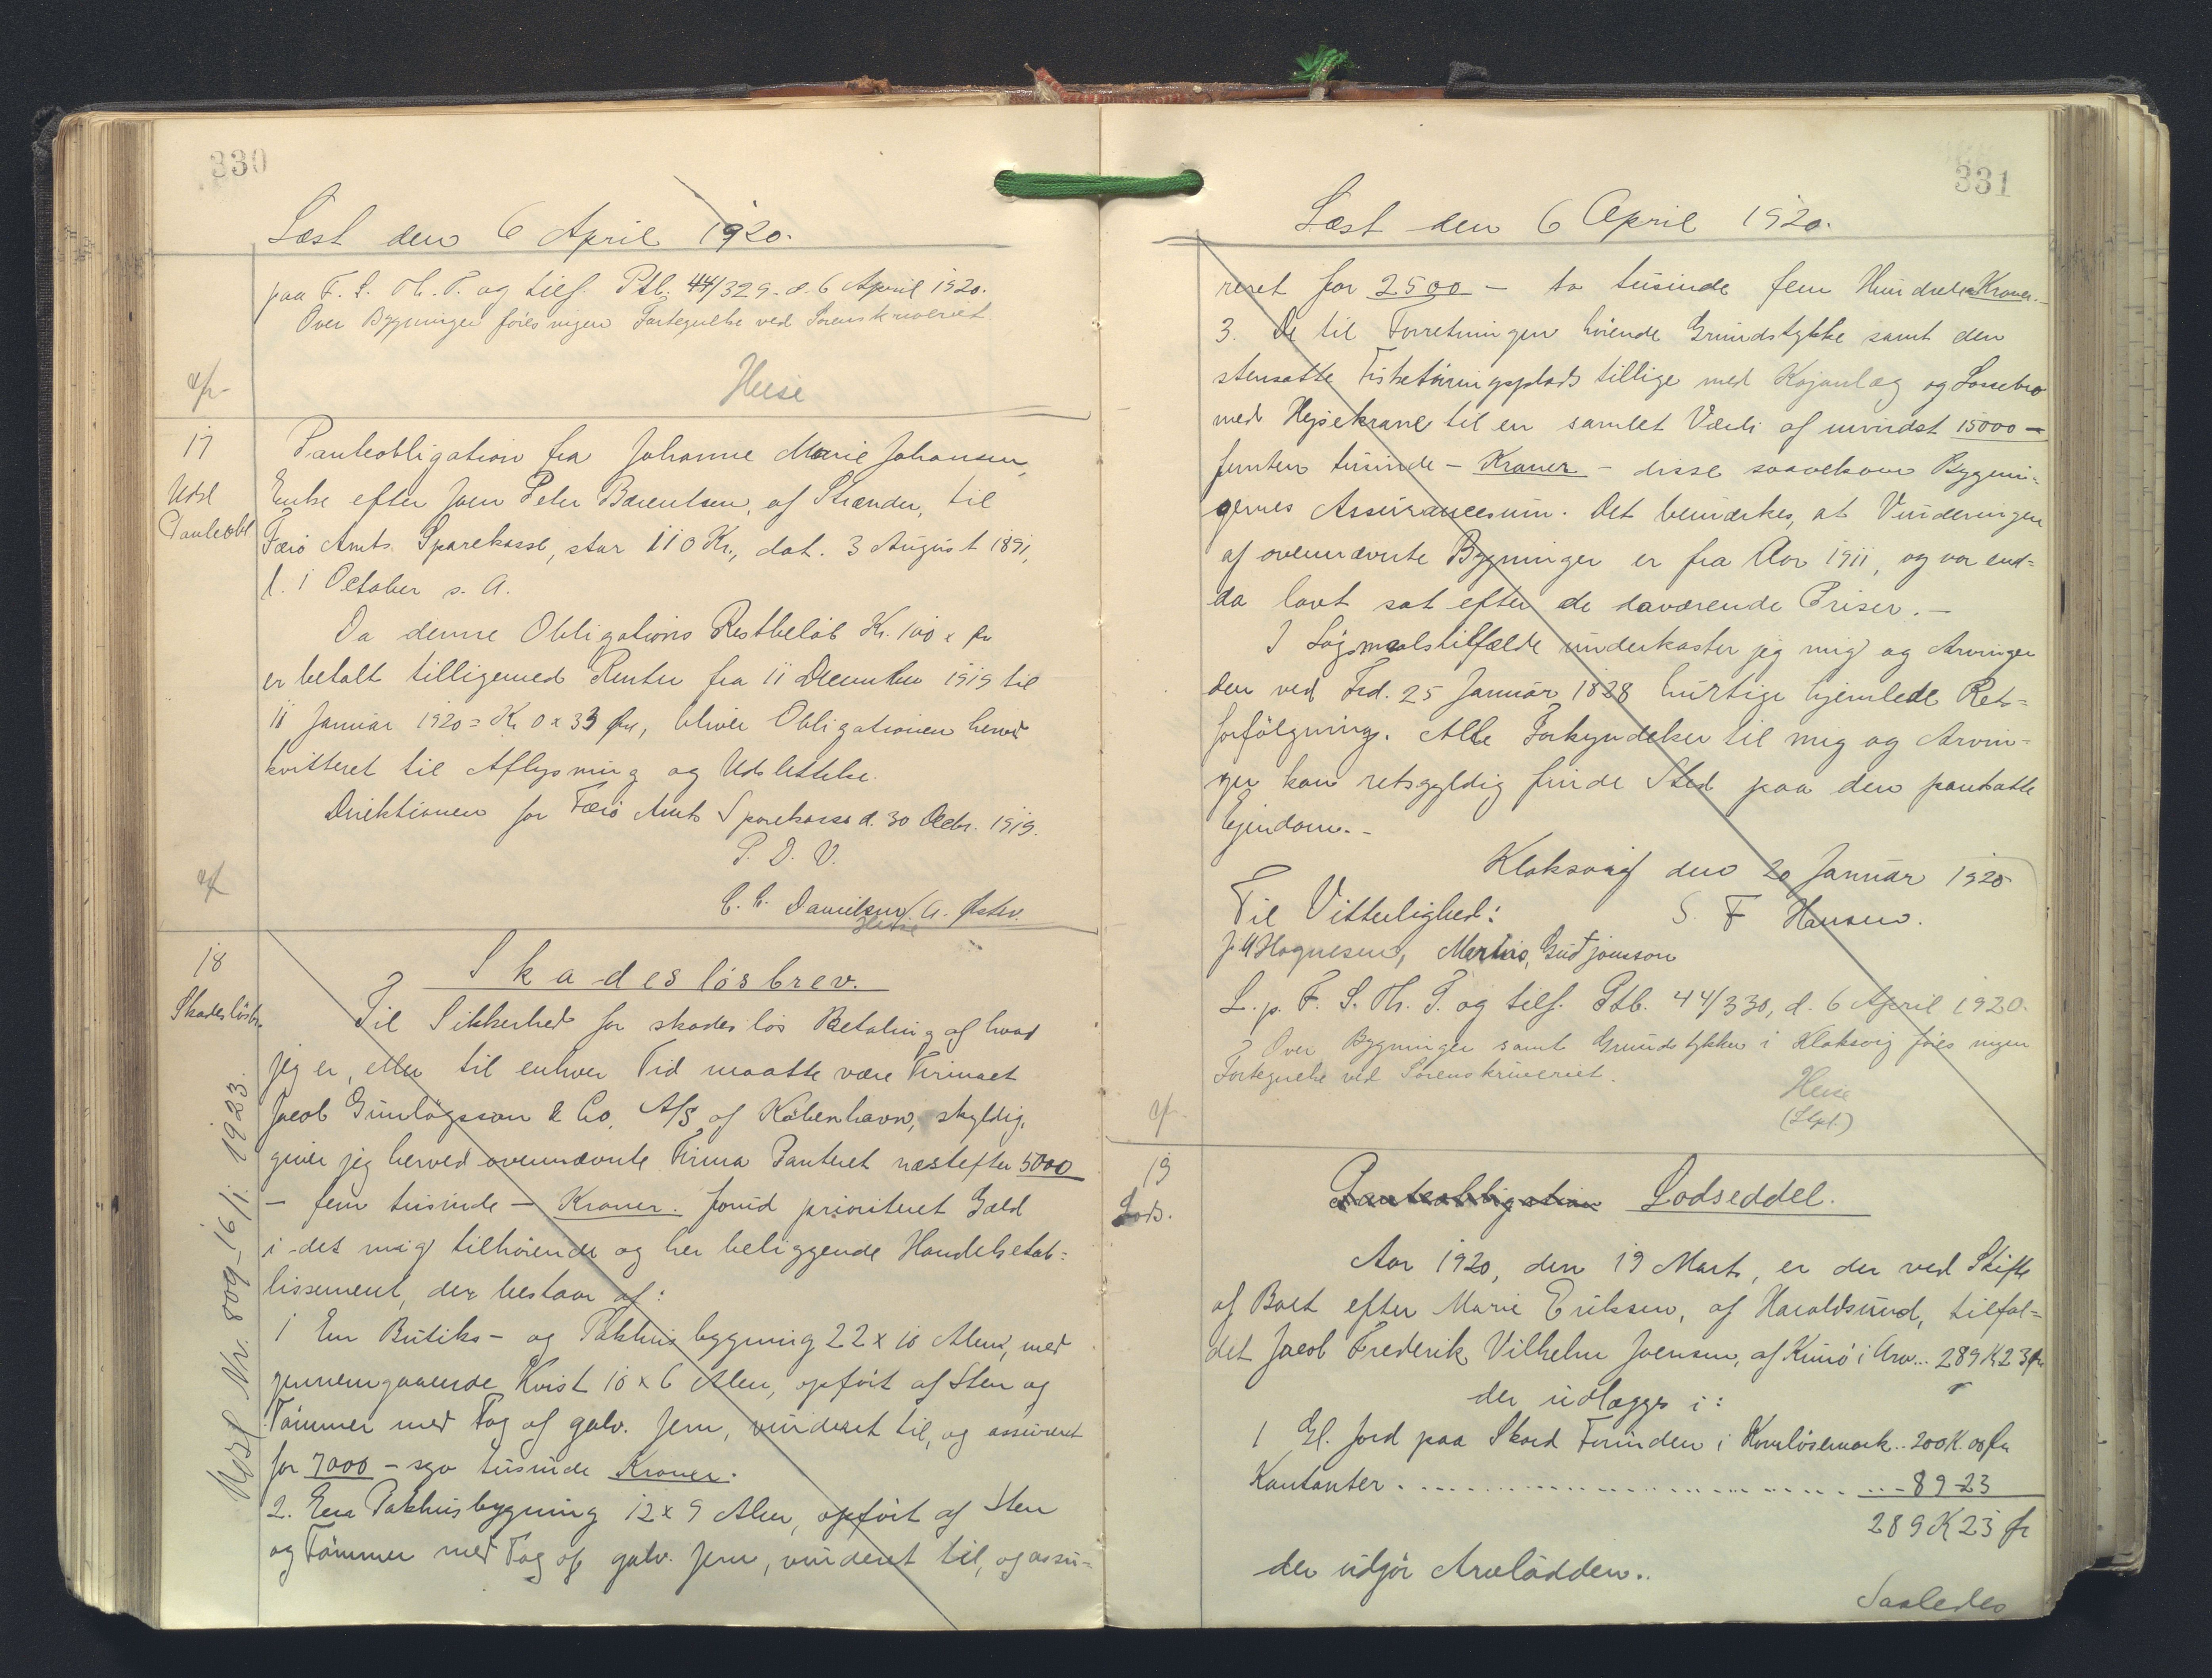 330
Læst den 6 April 1920.
paa F. S. Th. P. og tilf. Ptb. 44/329. d. 6 April 1920.
Over Bygninger føres ingen Fortegnelse ved Sorenskriveriet.
Heise
17
Udsl
Panteobl
Panteobligation fra Johanne Marie Johansen,
Enke efter Joen Peter Barentsen, af Strænder, til
Færø Amts Sparekasse, stor 110 Kr., dat. 3 August 1891,
l. 1 October s. A.
Da denne Obligations Restbeløb Kr. 100 x Ør
er betalt tilligemed Renter fra 11 December 1919 til
11 Januar 1920 = Kr. 0 x 33 Øre, bliver Obligationen herved
kvitteret til Aflysning og Udslettelse.
Direktionen for Færø Amts Sparekasse d. 30 Decbr. 1919.
P. D. V.
C. C. Danielsen / A.
Heise
18
Skadesløsbr.
Skadesløsbrev.
Til Sikkerhed for skadesløs Betaling af hvad
jeg er, eller til enhver Tid maatte være Firmaet
Jacob Gunløgsson & Co. A/S af København, skyldig,
giver jeg herved ovennævnte Firma Panteret næstefter 5000
- fem tusinde - Kroner. forud prioriteret Gæld
i det mig tilhørende og her beliggende Handelsetab=
lissement, der bestaar af:
1 En Butiks- og Pakhusbygning 22 x 10 Alen, med
gennemgaaende Kvist 10 x 6 Alen, opført af Sten og
Tømmer med Tag af galv. Jern, vurderet til, og assureret
for 7000 - syv tusinde Kroner.
2. Een Pakhusbygning 12 x 9 Alen, opført af Sten
og Tømmer med Tag af galv. Jern, vurderet til, og assu=
Udsl Nr. 809 - 16/1. 1923.
331
Læst den 6 April 1920.
reret for 2500 - to tusinde fem Hundrede Kroner.-
3. De til Forretningen hørende Grundstykke samt den
stensatte Fisketørringsplads tillige med Kajanlæg og Lossebro
med Hejsekrane til en samlet Værdi af mindst 15000 -
femten tusinde - Kroner - disse saavelsom Bygnin=
gernes Assurancesum. Det bemærkes, at Vurderingen
af ovennævnte Bygninger er fra Aar 1911, og var end=
da lavt sat efter de daværende Priser. -
I Søgsmaalstilfælde underkaster jeg mig og Arvinger
den ved Frd. 25 Januar 1828 hurtige hjemlede Rets=
forfølgning. Alle Forkyndelser til mig og Arvin=
ger kan retsgyldig finde Sted paa den pantsatte
Ejendom. -
Klaksvig den 20 Januar 1920
S. F Hansen.
Til Vitterlighed:
Hognesen, Martus, Gudjonsson
L. p. F. S. Th. P. og tilf. Ptb. 44/330, d. 6 April 1920.
Over Bygninger samt Grundstykker i Klaksvig føres ingen
Fortegnelse ved Sorenskriveriet.
Heise
19
Lods.
Panteobligation Lodseddel.
Aar 1920, den 19 Marts, er der ved Skifte
af Boet efter Marie Eriksen, af Haraldsund, tilfal=
det Jacob Frederik Vilhelm Joensen, af Kunø i Arv... 289 K 23 Ør
der udlægges i:
1 Gl. Jord paa Skord Ferinden i Kornløsemark.. 200 K. 00 Ør
Kontanter . . . . . . . . . . . . . . . . 89 - 23
289 K 23 Ør
der udgør Arvelodden..
Saaledes